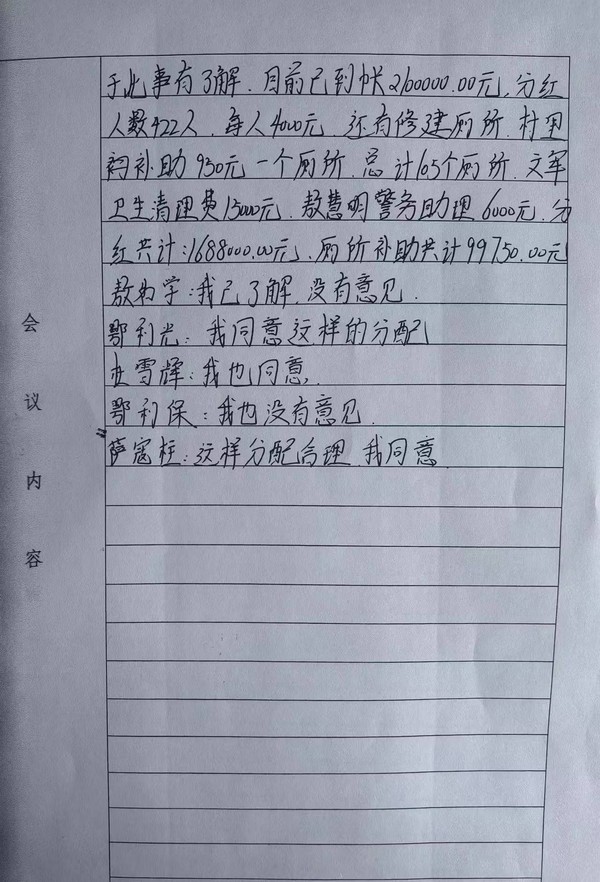 于此事有了解.目前已到帐2100000.00元,分红
人数422人.每人4000元.还有修建厕所.村里
补助950元一个厕所.总计105个厕所.文军
卫生清理费15000元.敖慧明警务助理6000元.分
红共计:1688000.00元.厕所补助共计99750.00元
敖 学:我已了解.没有意见.
鄂利光:我同意这样的分配
杜雪辉:我也同意.
鄂利保:我也没有意见.
萨寇柱:这样分配合理 我同意
会
议
内
容